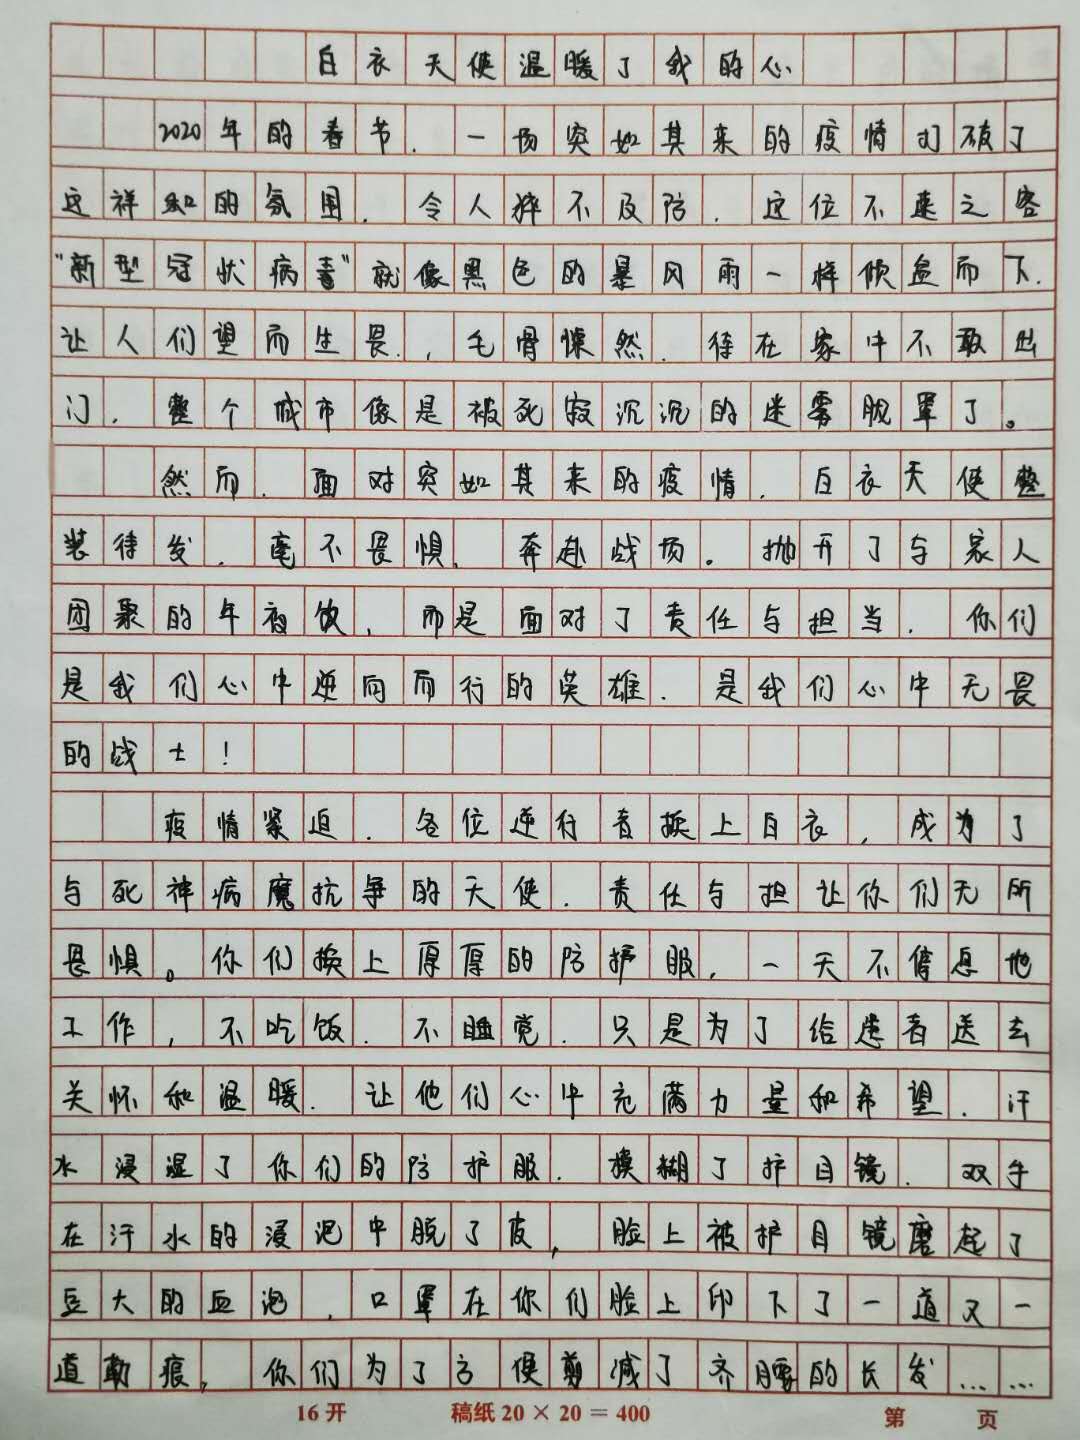 白衣天使温暖了我的心
2020年的春节.一场突如其来的疫情打破了
这祥和的氛围.令人猝不及防.这位不速之客
“新型冠状病毒”就像黑色的暴风雨一样倾盆而下.
让人们望而生畏.,毛骨悚然.待在家中不敢出
门.整个城市像是被死寂沉沉的迷雾脱罩了。
然而.面对突如其来的疫情.白衣天使整
装待发.毫不畏惧.奔赴战场。抛开了与家人
团聚的年夜饭,而是面对了责任与担当.你们
是我们心中逆向而行的英雄.是我们心中无畏
的战士!
疫情紧迫.各位逆行者换上白衣,成为了
与死神病魔抗争的天使.责任与担让你们无所
畏惧。你们换上厚厚的防护服.一天不停息地
工作,不吃饭.不睡觉.只是为了给患者送去
关怀和温暖.让他们心中充满力量和希望.汗
水浸湿了你们的防护服.模糊了护目镜.双手
在汗水的浸泡中脱了皮,脸上被护目镜磨起了
豆大的血泡,口罩在你们脸上印下了一道又一
道勒痕,你们为了方便剪减了齐腰的长发……
16开 稿纸20×20=400 第 页